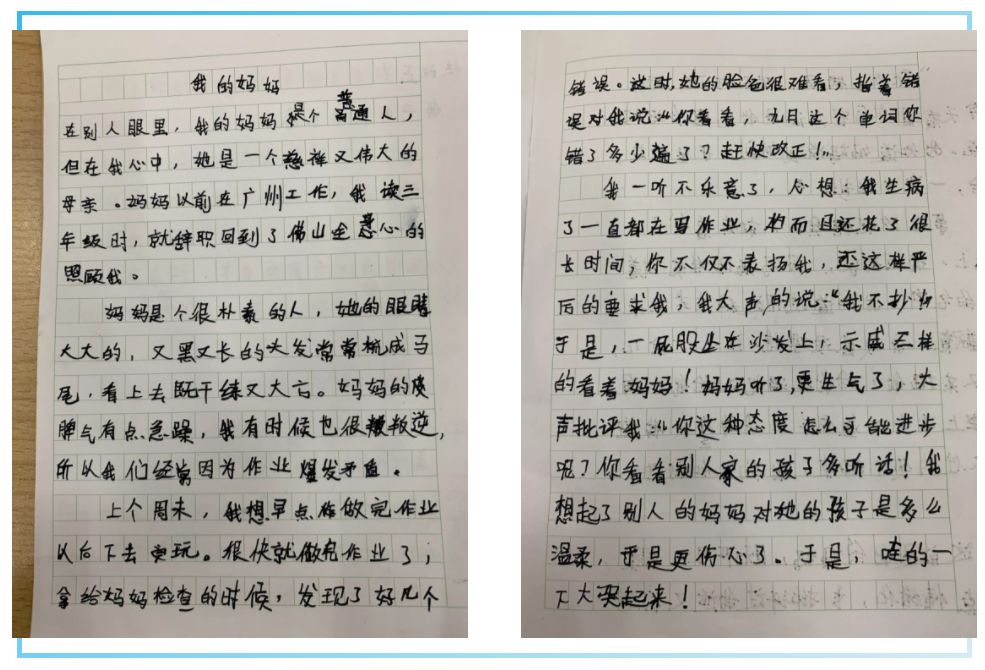 我的妈妈
在别人眼里，我的妈妈是个普通人，
但在我心中，她是一个慈祥又伟大的
母亲。妈妈以前在广州工作，我读三
年级时，就辞职回到了佛山全心的
照顾我。
妈妈是个很朴素的人，她的眼睛
大大的，又黑又长的头发常常梳成马
尾，看上去既干练又大方。妈妈的
脾气有点急躁，我有时候也很叛逆，
所以我们经常因为作业爆发矛盾。
上个周末，我想早点做完作业
以后下去玩。很快就做完作业了，
拿给妈妈检查的时候，发现了好几个
错误。这时，她的脸色很难看，指着错
误对我说：“你看看，九月这个单词你
错了多少遍了？赶快改正！”
我一听不乐意了，心想：我生病
了一直都在写作业，而且还花了很
长时间，你不仅不表扬我，还这样严
厉的要求我，我大声的说：“我不抄！”
于是，一屁股坐在沙发上，示威一样
的看着妈妈！妈妈听了，更生气了，大
声批评我：“你这种态度怎么可能进步
呢？你看看别人家的孩子多听话！我
想起了别人的妈妈对她的孩子是多么
温柔，于是更伤心了。于是，哇的一
下大哭起来！